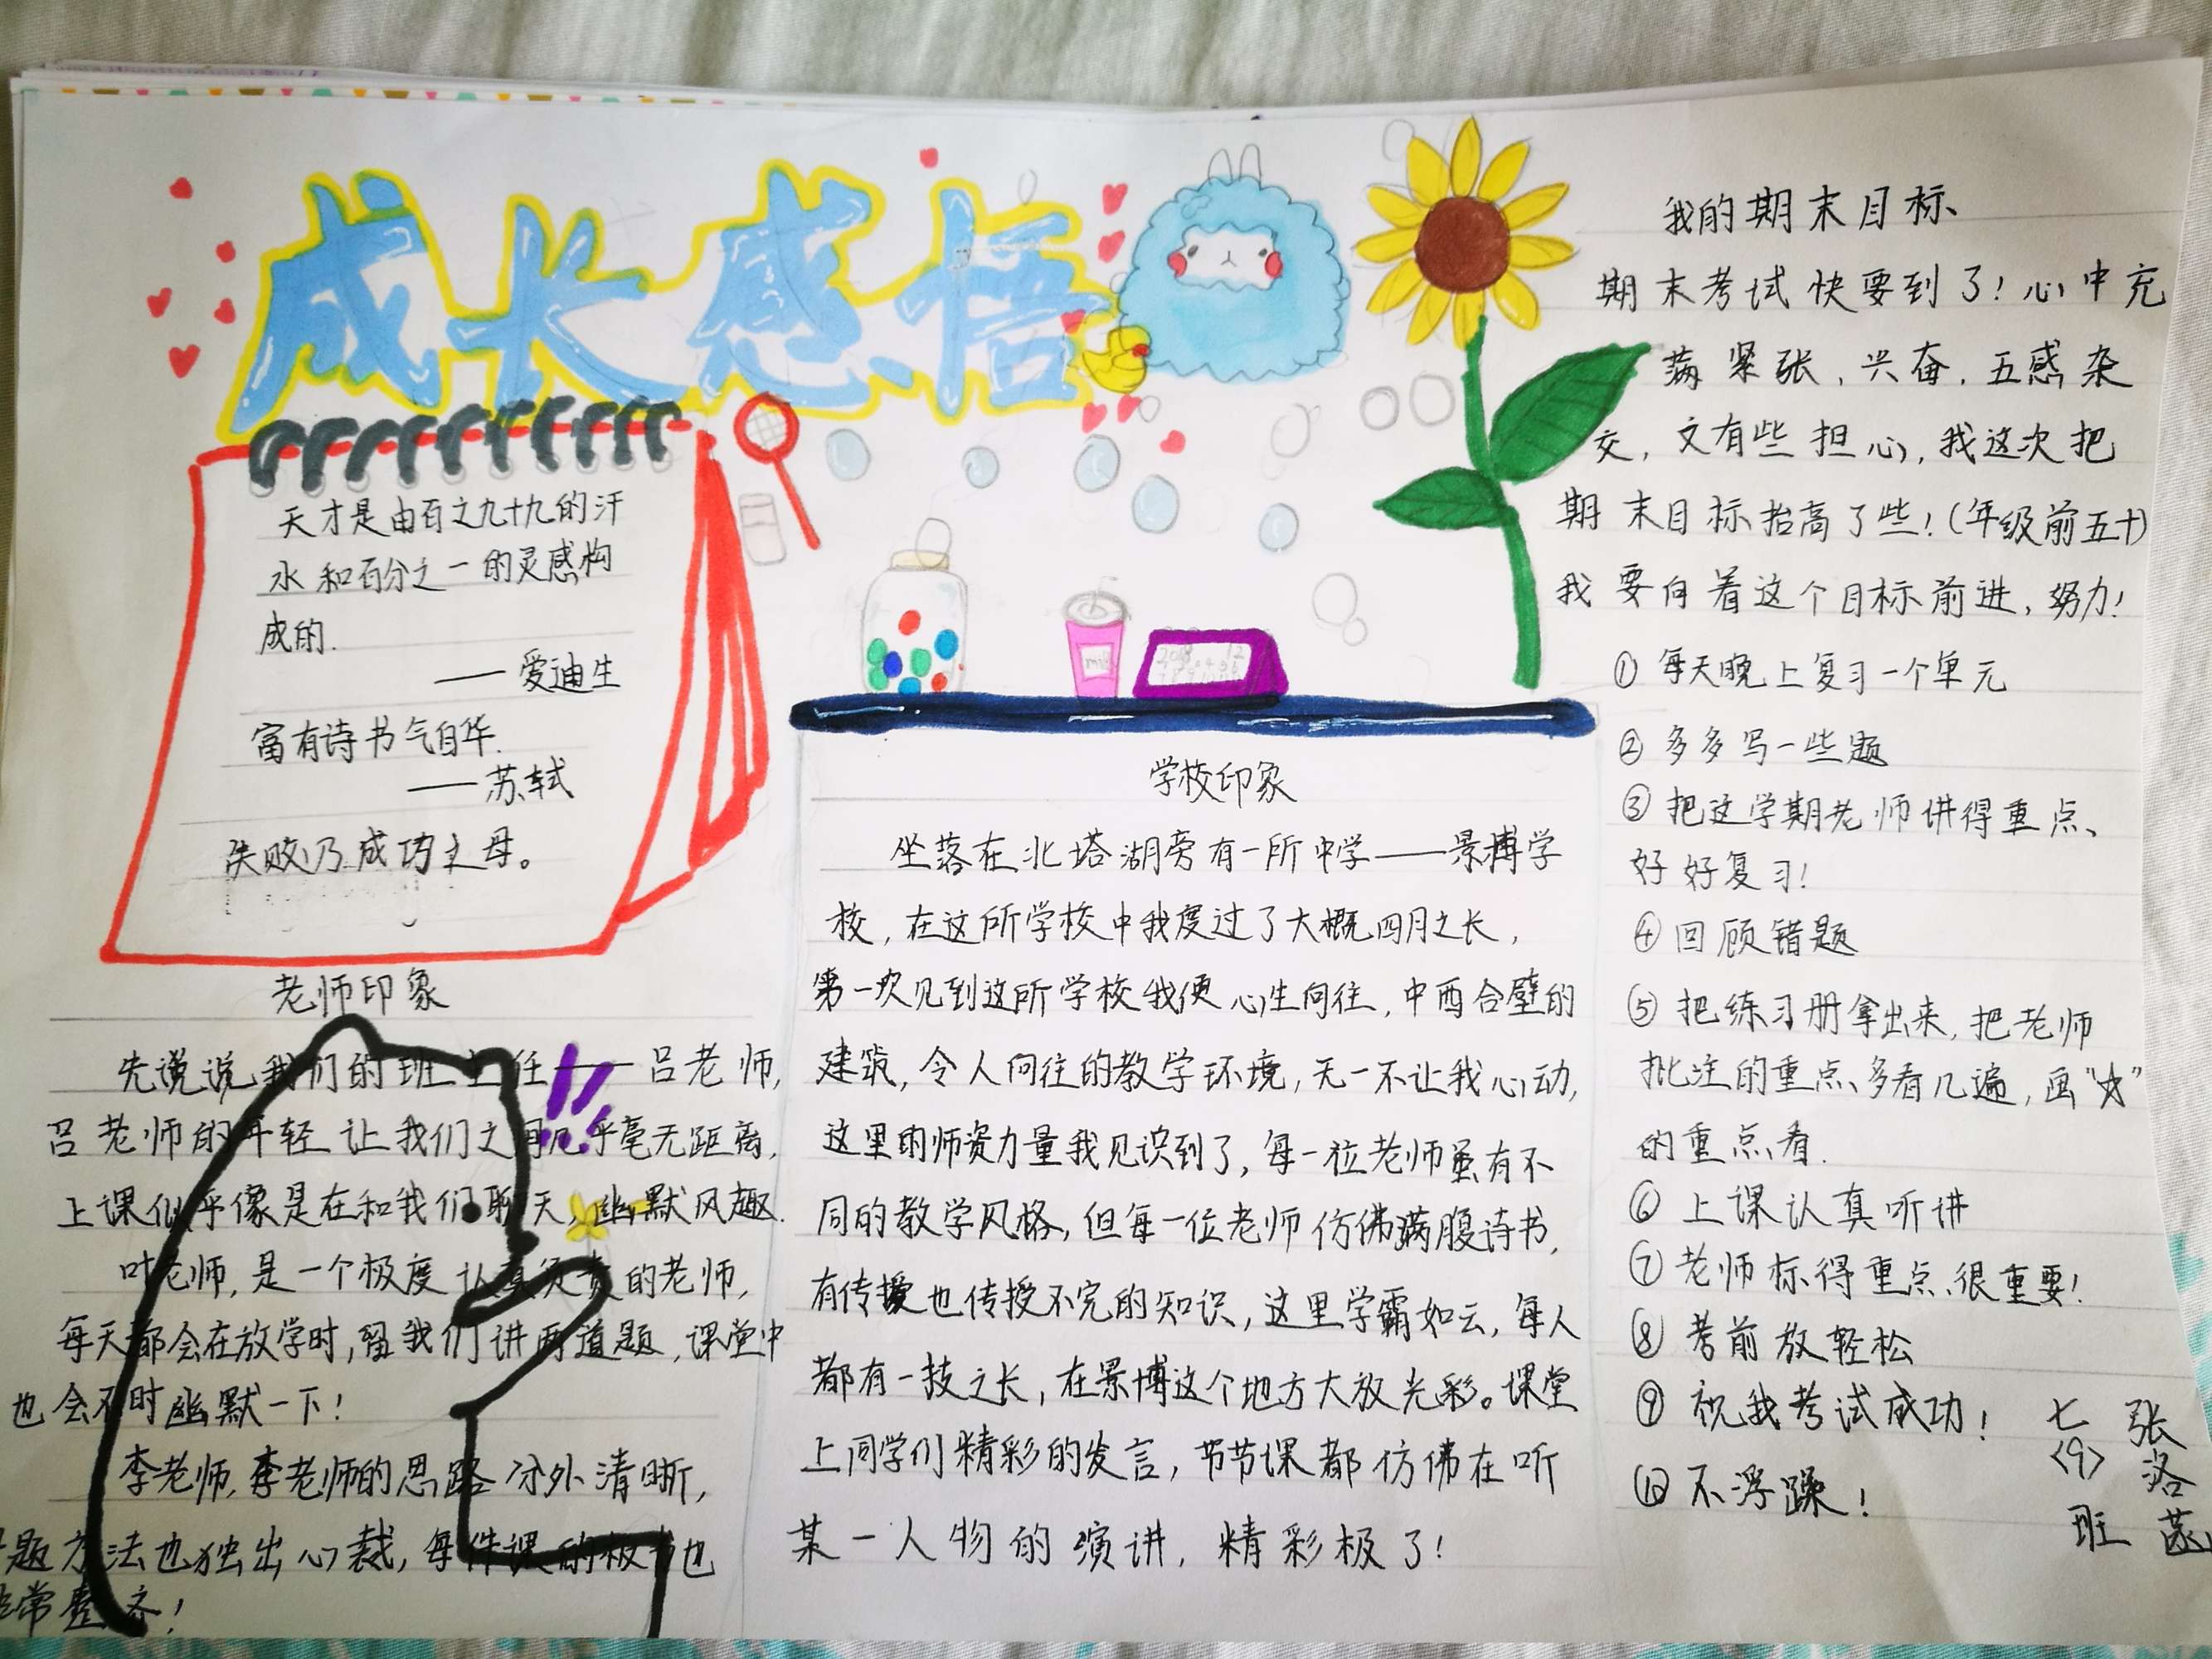 成长感悟
天才是由百之九十九的汗
水和百分之一的灵感构
成的.
——爱迪生
富有诗书气自华.
——苏轼
失败乃成功之母。
老师印象
先说说我们的班主任——吕老师,
吕老师的年轻让我们之间几乎毫无距离,
上课似乎像是在和我们聊天,幽默风趣.
叶老师,是一个极度认真负责的老师,
每天都会在放学时,留我们讲两道题,课堂中
也会不时幽默一下!
李老师,李老师的思路分外清晰,
题方法也独出心裁,每件课的板书也
常整齐!
milk
2018 12
学校印象
坐落在北塔湖旁有一所中学——景博学
校,在这所学校中我度过了大概四月之长,
第一次见到这所学校我便心生向往,中西合壁的
建筑,令人向往的教学环境,无一不让我心动,
这里的师资力量我见识到了,每一位老师虽有不
同的教学风格,但每一位老师仿佛满腹诗书,
有传授也传授不完的知识,这里学霸如云,每人
都有一技之长,在景博这个地方大放光彩。课堂
上同学们精彩的发言,节节课都仿佛在听
某一人物的演讲,精彩极了!
我的期末目标
期末考试快要到了!心中充
满紧张,兴奋,五感杂
交,又有些担心,我这次把
期末目标抬高了些!(年级前五十)
我要向着这个目标前进,努力!
①每天晚上复习一个单元
②多多写一些题
③把这学期老师讲得重点、
好好复习!
④回顾错题
⑤把练习册拿出来,把老师
批注的重点多看几遍,画“☆”
的重点看.
⑥上课认真听讲
⑦老师标得重点很重要!
⑧考前放轻松
⑨祝我考试成功!
⑩不浮躁!
七〈9〉班
张洛菡